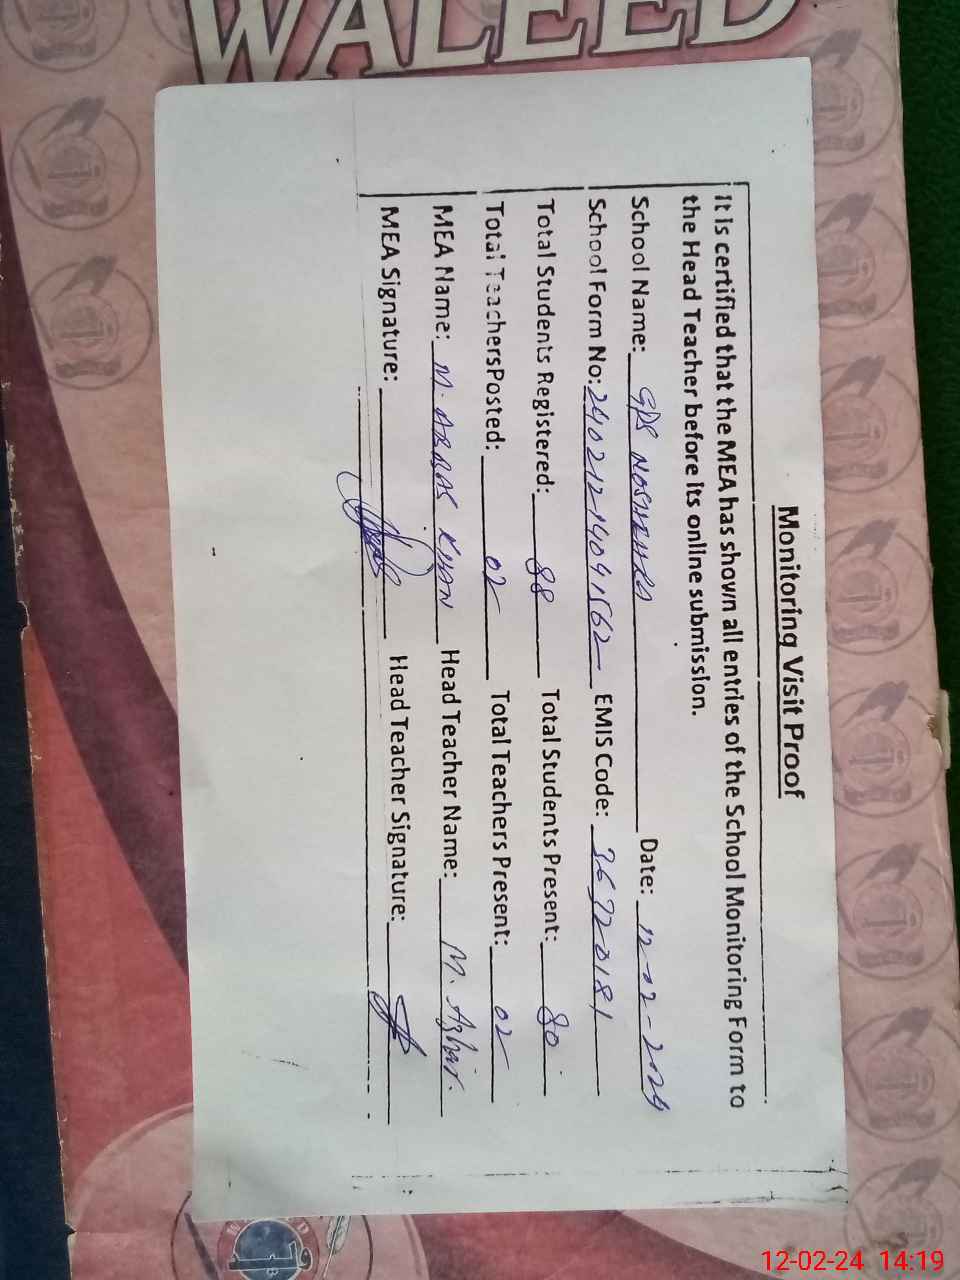 WALEED
Monitoring Visit Proof
It is certified that the MEA has shown all entries of the School Monitoring Form to
the Head Teacher before its online submission.
School Name: GPS Date: 12-02-2024
School Form No: 24021214041562 EMIS Code: 36720181
Total Students Registered: 88 Total Students Present: 80
Total TeachersPosted: 02 Total Teachers Present: 02
MEA Name: M. ABBAS KHAN Head Teacher Name: M. Azhar.
MEA Signature: Head Teacher Signature:
12-02-24 14:19